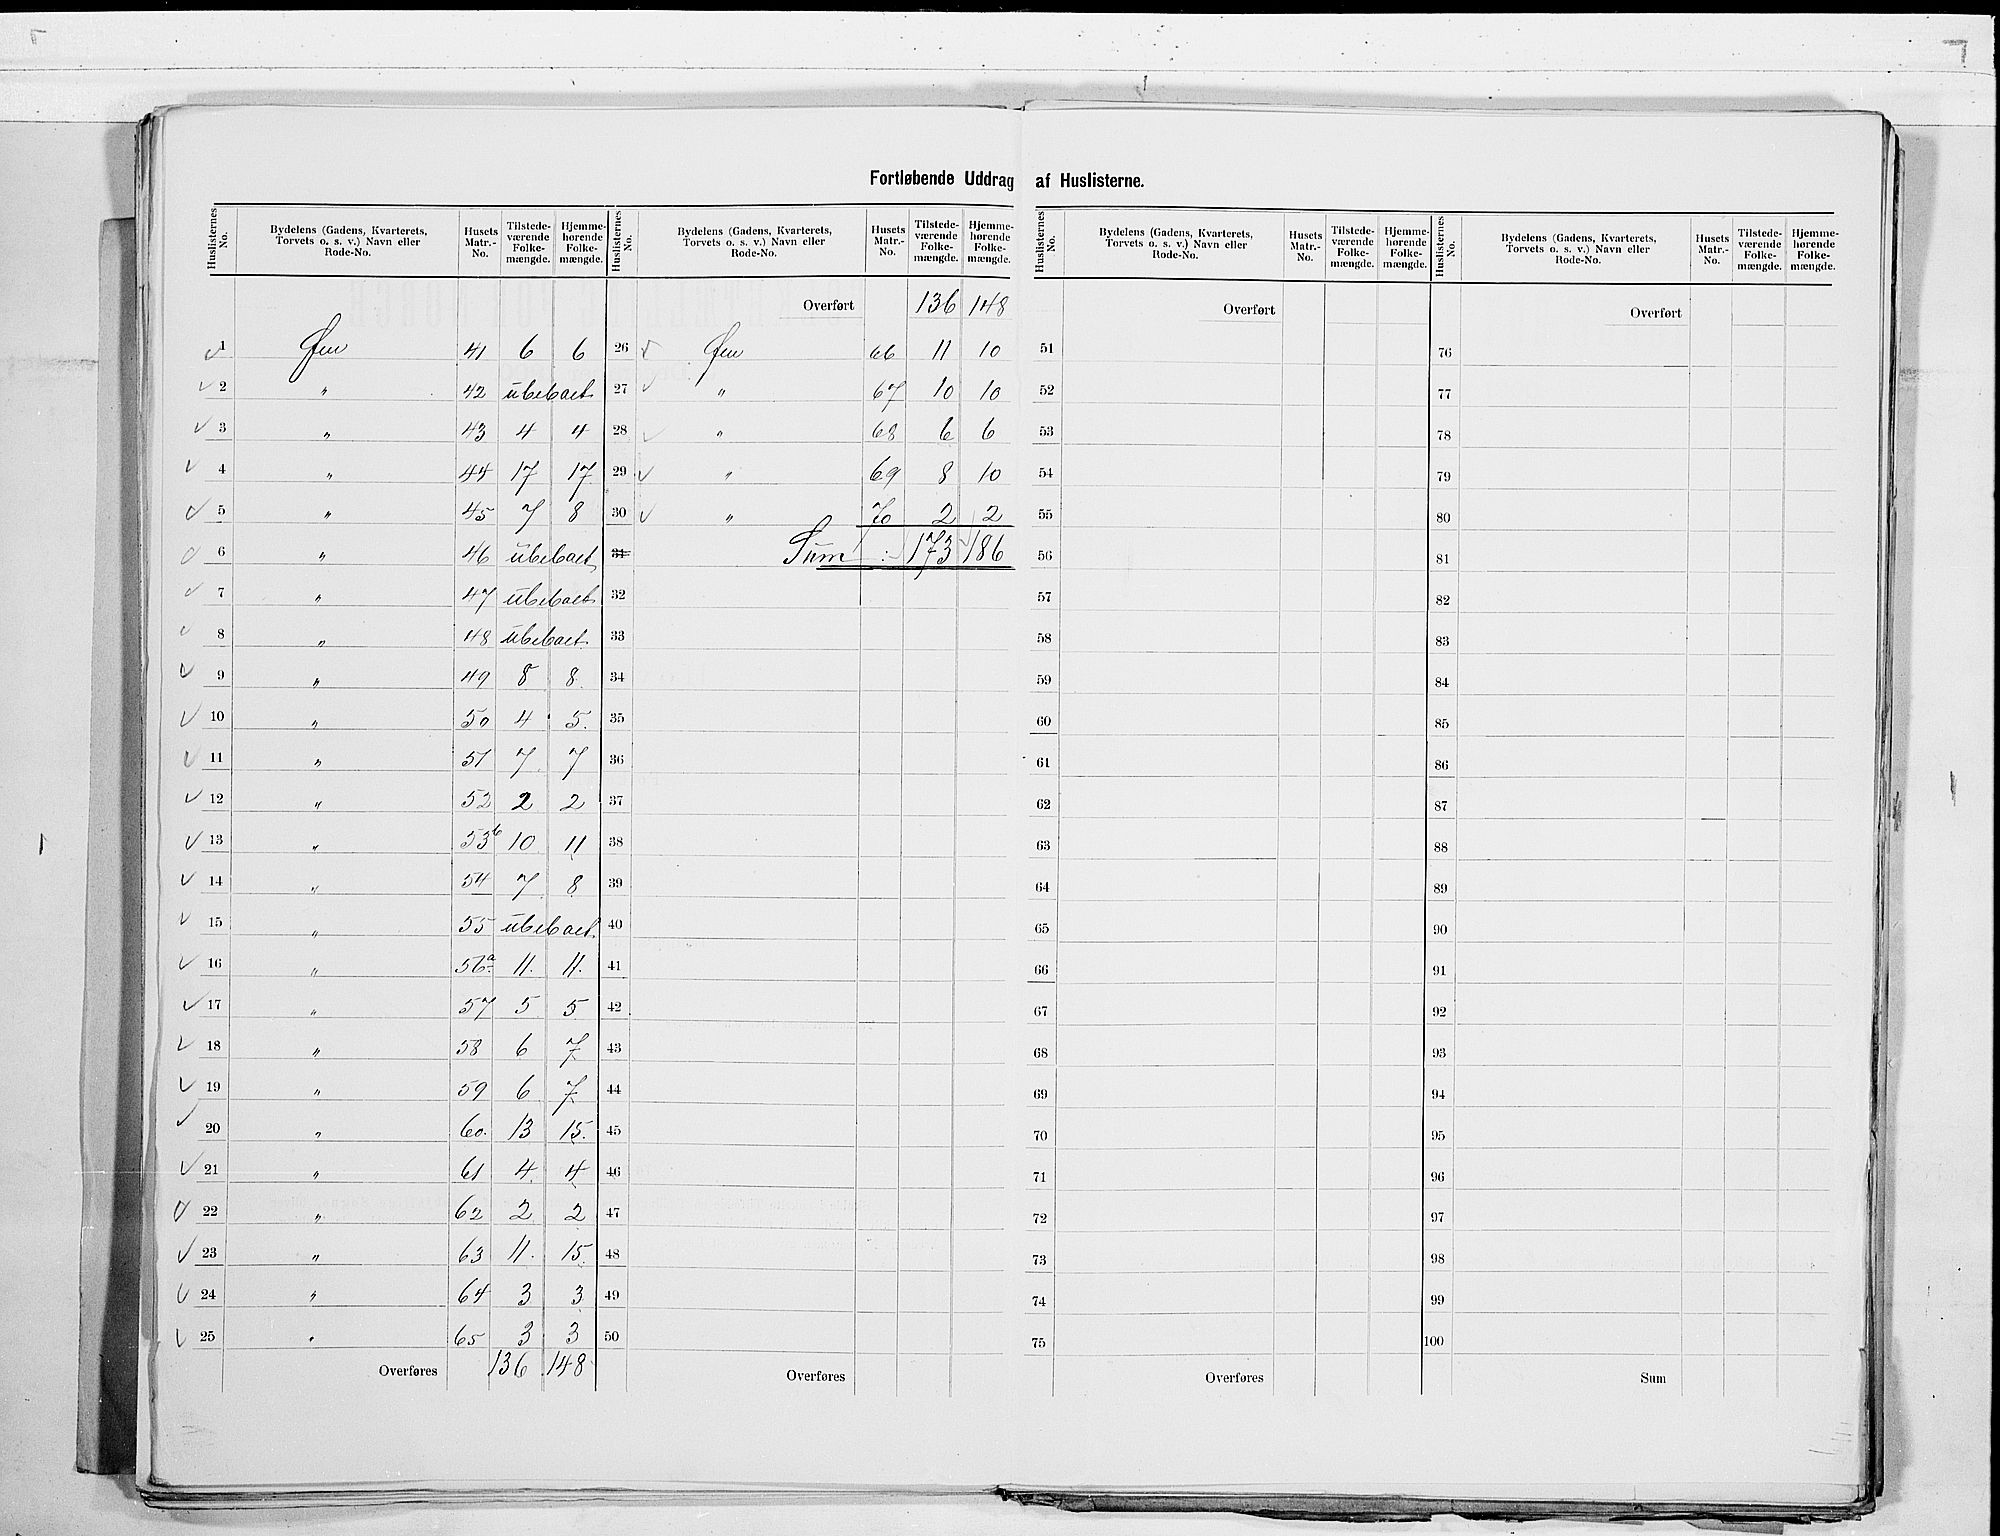 Fortløbende Uddrag af Huslisterne.
Huslisternes No. Bydelens (Gadens, Kvarterets, Torvets o. s. v.) Navn eller Rode-No. Husets Matr.-No. Tilstedeværende Folkemængde. Hjemmehørende Folkemængde.
1 Øen 41 6 6
2 " 42 ubeboet
3 " 43 4 4
4 " 44 17 17
5 " 45 7 8
6 " 46 ubeboet
7 " 47 ubeboet
8 " 48 ubeboet
9 " 49 8 8
10 " 50 4 5
11 " 51 7 7
12 " 52 2 2
13 " 53b 10 11
14 " 54 7 8
15 " 55 ubeboet
16 " 56a 11 11
17 " 57 5 5
18 " 58 6 7
19 " 59 6 7
20 " 60 13 15
21 " 61 4 4
22 " 62 2 2
23 " 63 11 15
24 " 64 3 3
25 " 65 3 3
Overføres 136 148
Huslisternes No. Bydelens (Gadens, Kvarterets, Torvets o. s. v.) Navn eller Rode-No. Husets Matr.-No. Tilstedeværende Folkemængde. Hjemmehørende Folkemængde.
Overført 136 148
26 Øen 66 11 10
27 " 67 10 10
28 " 68 6 6
29 " 69 8 10
30 " 70 2 2
31 Sum : 173 186
32
33
34
35
36
37
38
39
40
41
42
43
44
45
46
47
48
49
50
Overføres
Huslisternes No. Bydelens (Gadens, Kvarterets, Torvets o. s. v.) Navn eller Rode-No. Husets Matr.-No. Tilstedeværende Folkemængde. Hjemmehørende Folkemængde.
Overført
51
52
53
54
55
56
57
58
59
60
61
62
63
64
65
66
67
68
69
70
71
72
73
74
75
Overføres
Huslisternes No. Bydelens (Gadens, Kvarterets, Torvets o. s. v.) Navn eller Rode-No. Husets Matr.-No. Tilstedeværende Folkemængde. Hjemmehørende Folkemængde.
Overført
76
77
78
79
80
81
82
83
84
85
86
87
88
89
90
91
92
93
94
95
96
97
98
99
100
Sum